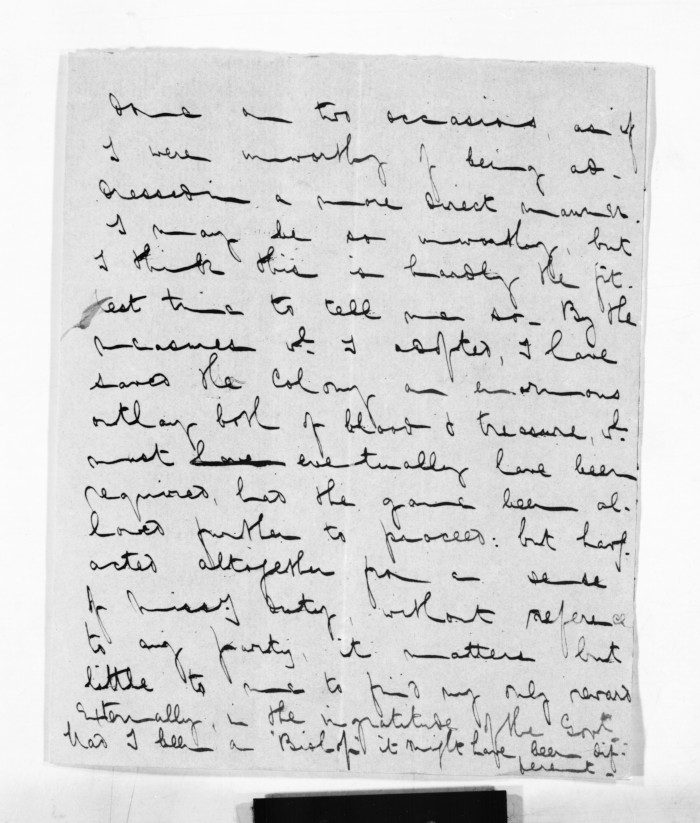 some on two occasions, as if
I were unworthy of being ad-
dressed in a more direct manner.
I may be so unworthy, but
I think this is hardly the fit-
test time to tell me so_ By the
measures wh. I adopted, I have
saved the Colony an enormous
outlay both of blood & treasure, wh.
must have eventually have been
required, had the game been al-
lowed further to proceed: but havg.
acted altogether from a sense
of duty, without reference
to any party, it matters but
little to me to find my only reward
Externally, in the ingratitude of the Govt.
Had I been a "Bishop" it might have been dif-
ferent_